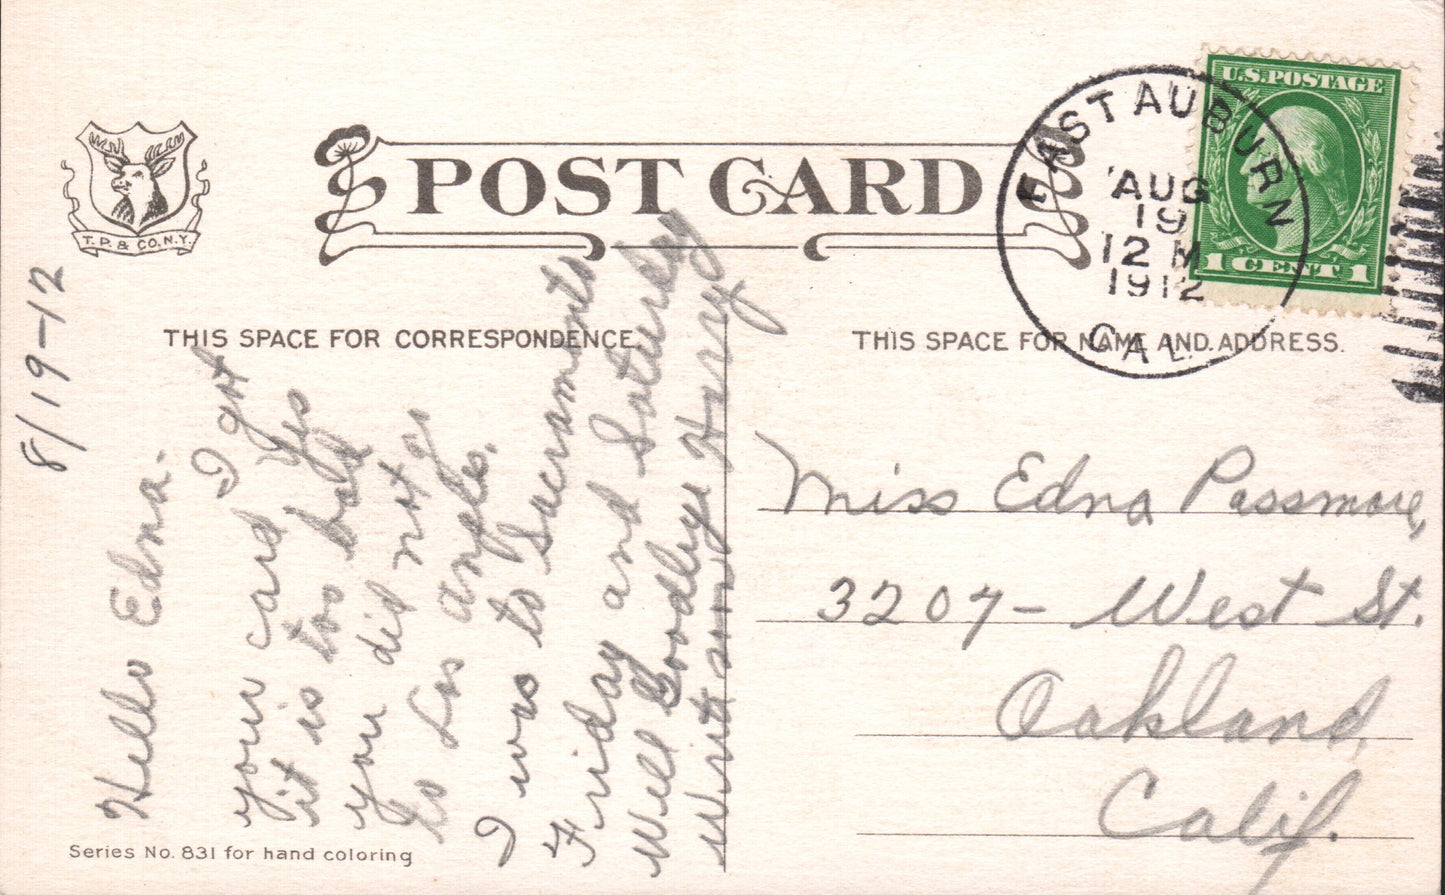 POST CARD
T. P. & CO. N.Y.
EAST AUBURN
AUG
19
12 M
1912
CAL.
U.S. POSTAGE
1 CENT 1
THIS SPACE FOR CORRESPONDENCE.
THIS SPACE FOR NAME AND ADDRESS.
8/19-12
Hello Edna-
I got
your card yes
it is too bad
you did not go
to Los Angles.
I was to Sacramento
Friday and Saturday
Well Goodbye Harry
Writ soon
Miss Edna Passmore,
3207- West St.
Oakland,
Calif.
Series No. 831 for hand coloring